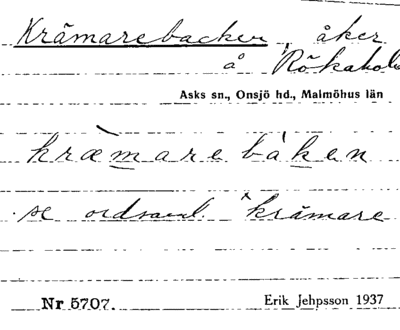 Krämarebacken, åker
å Rökahol
Asks sn., Onsjö hd., Malmöhus län
kræmarebåken
se ordsaml. krämare
Nr 5707. Erik Jehpsson 1937